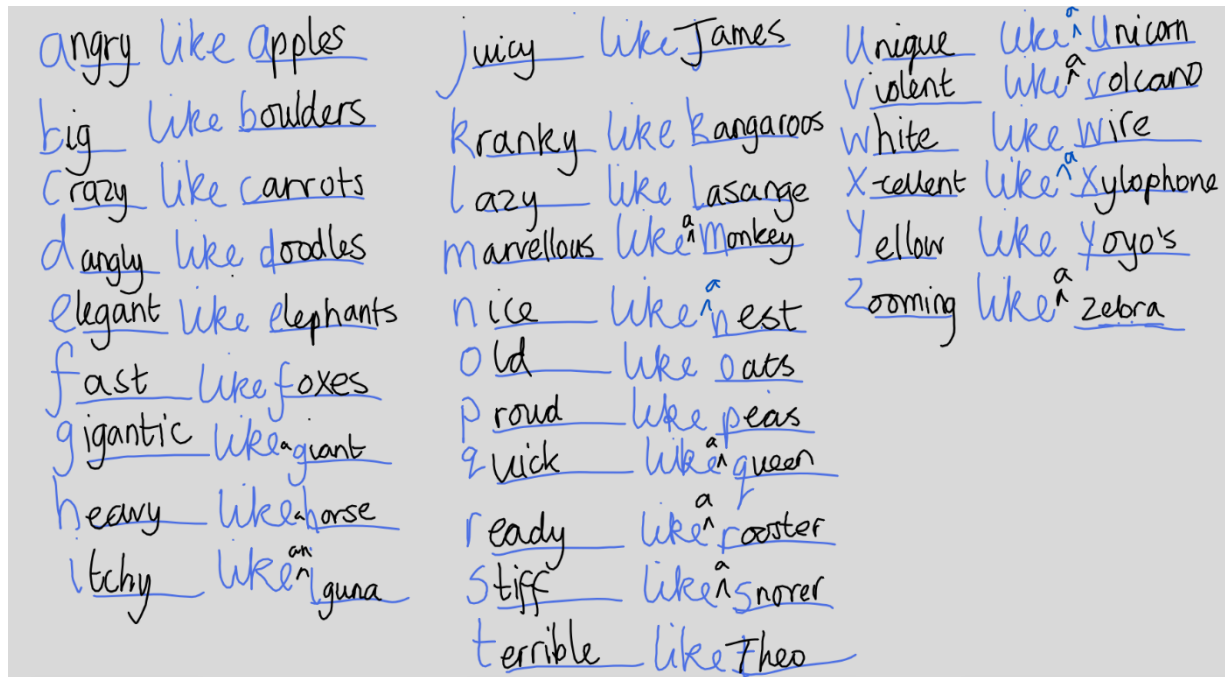 angry like apples
big like boulders
crazy like carrots
dangly like doodles
elegant like elephants
fast like foxes
gigantic like a giant
heavy like a horse
itchy like an iguna
juicy like James
kranky like kangaroos
lazy like Lasange
marvellous like a Monkey
nice like a nest
old like oats
proud like peas
quick like a queen
ready like a rooster
stiff like a snorer
terrible like Theo
Unique like a Unicorn
violent like a volcano
white like wire
X-cellent like a Xylophone
Yellow like Yoyo's
Zooming like a zebra